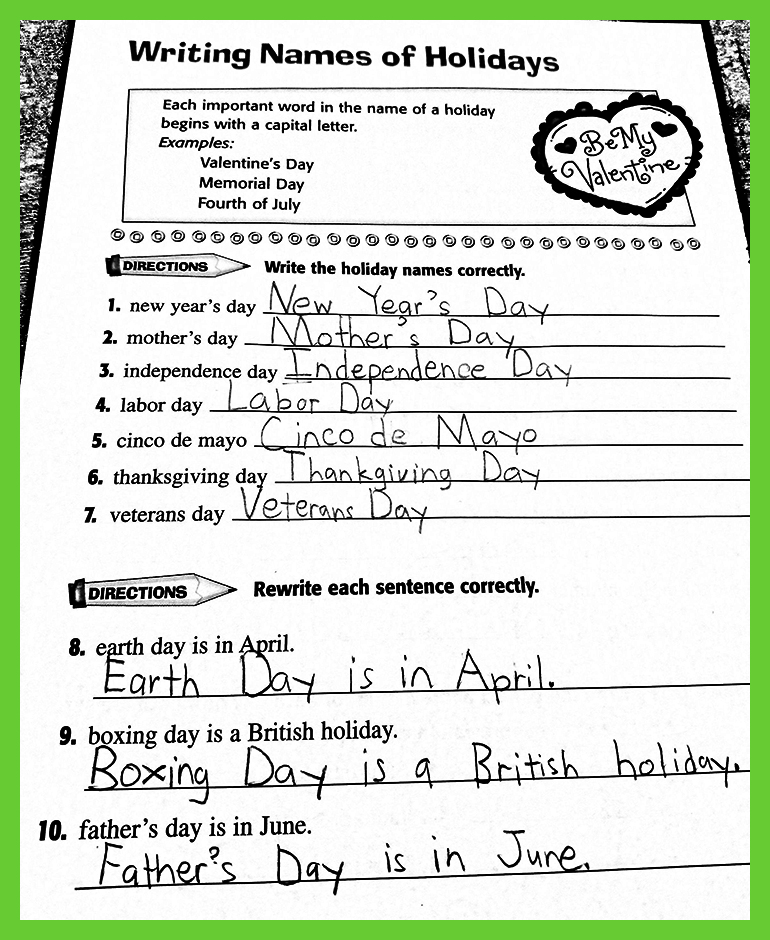 Writing Names of Holidays
Each important word in the name of a holiday
begins with a capital letter.
Examples:
Valentine's Day
Memorial Day
Fourth of July
Be My
Valentine
DIRECTIONS Write the holiday names correctly.
1. new year's day New Year's Day
2. mother's day Mother's Day
3. independence day Independence Day
4. labor day Labor Day
5. cinco de mayo Cinco de Mayo
6. thanksgiving day Thankgiving Day
7. veterans day Veterans Day
DIRECTIONS Rewrite each sentence correctly.
8. earth day is in April.
Earth Day is in April.
9. boxing day is a British holiday.
Boxing Day is a British holiday.
10. father's day is in June.
Father's Day is in June.